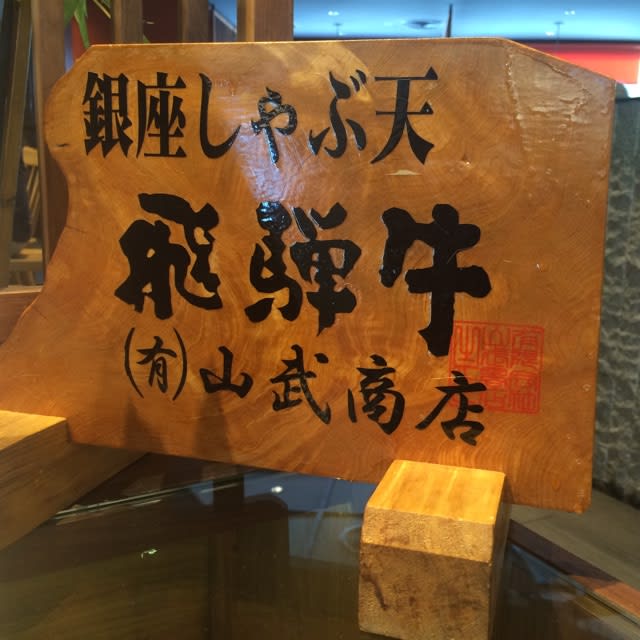 銀座しゃぶ天
飛騨牛
(有)山武商店